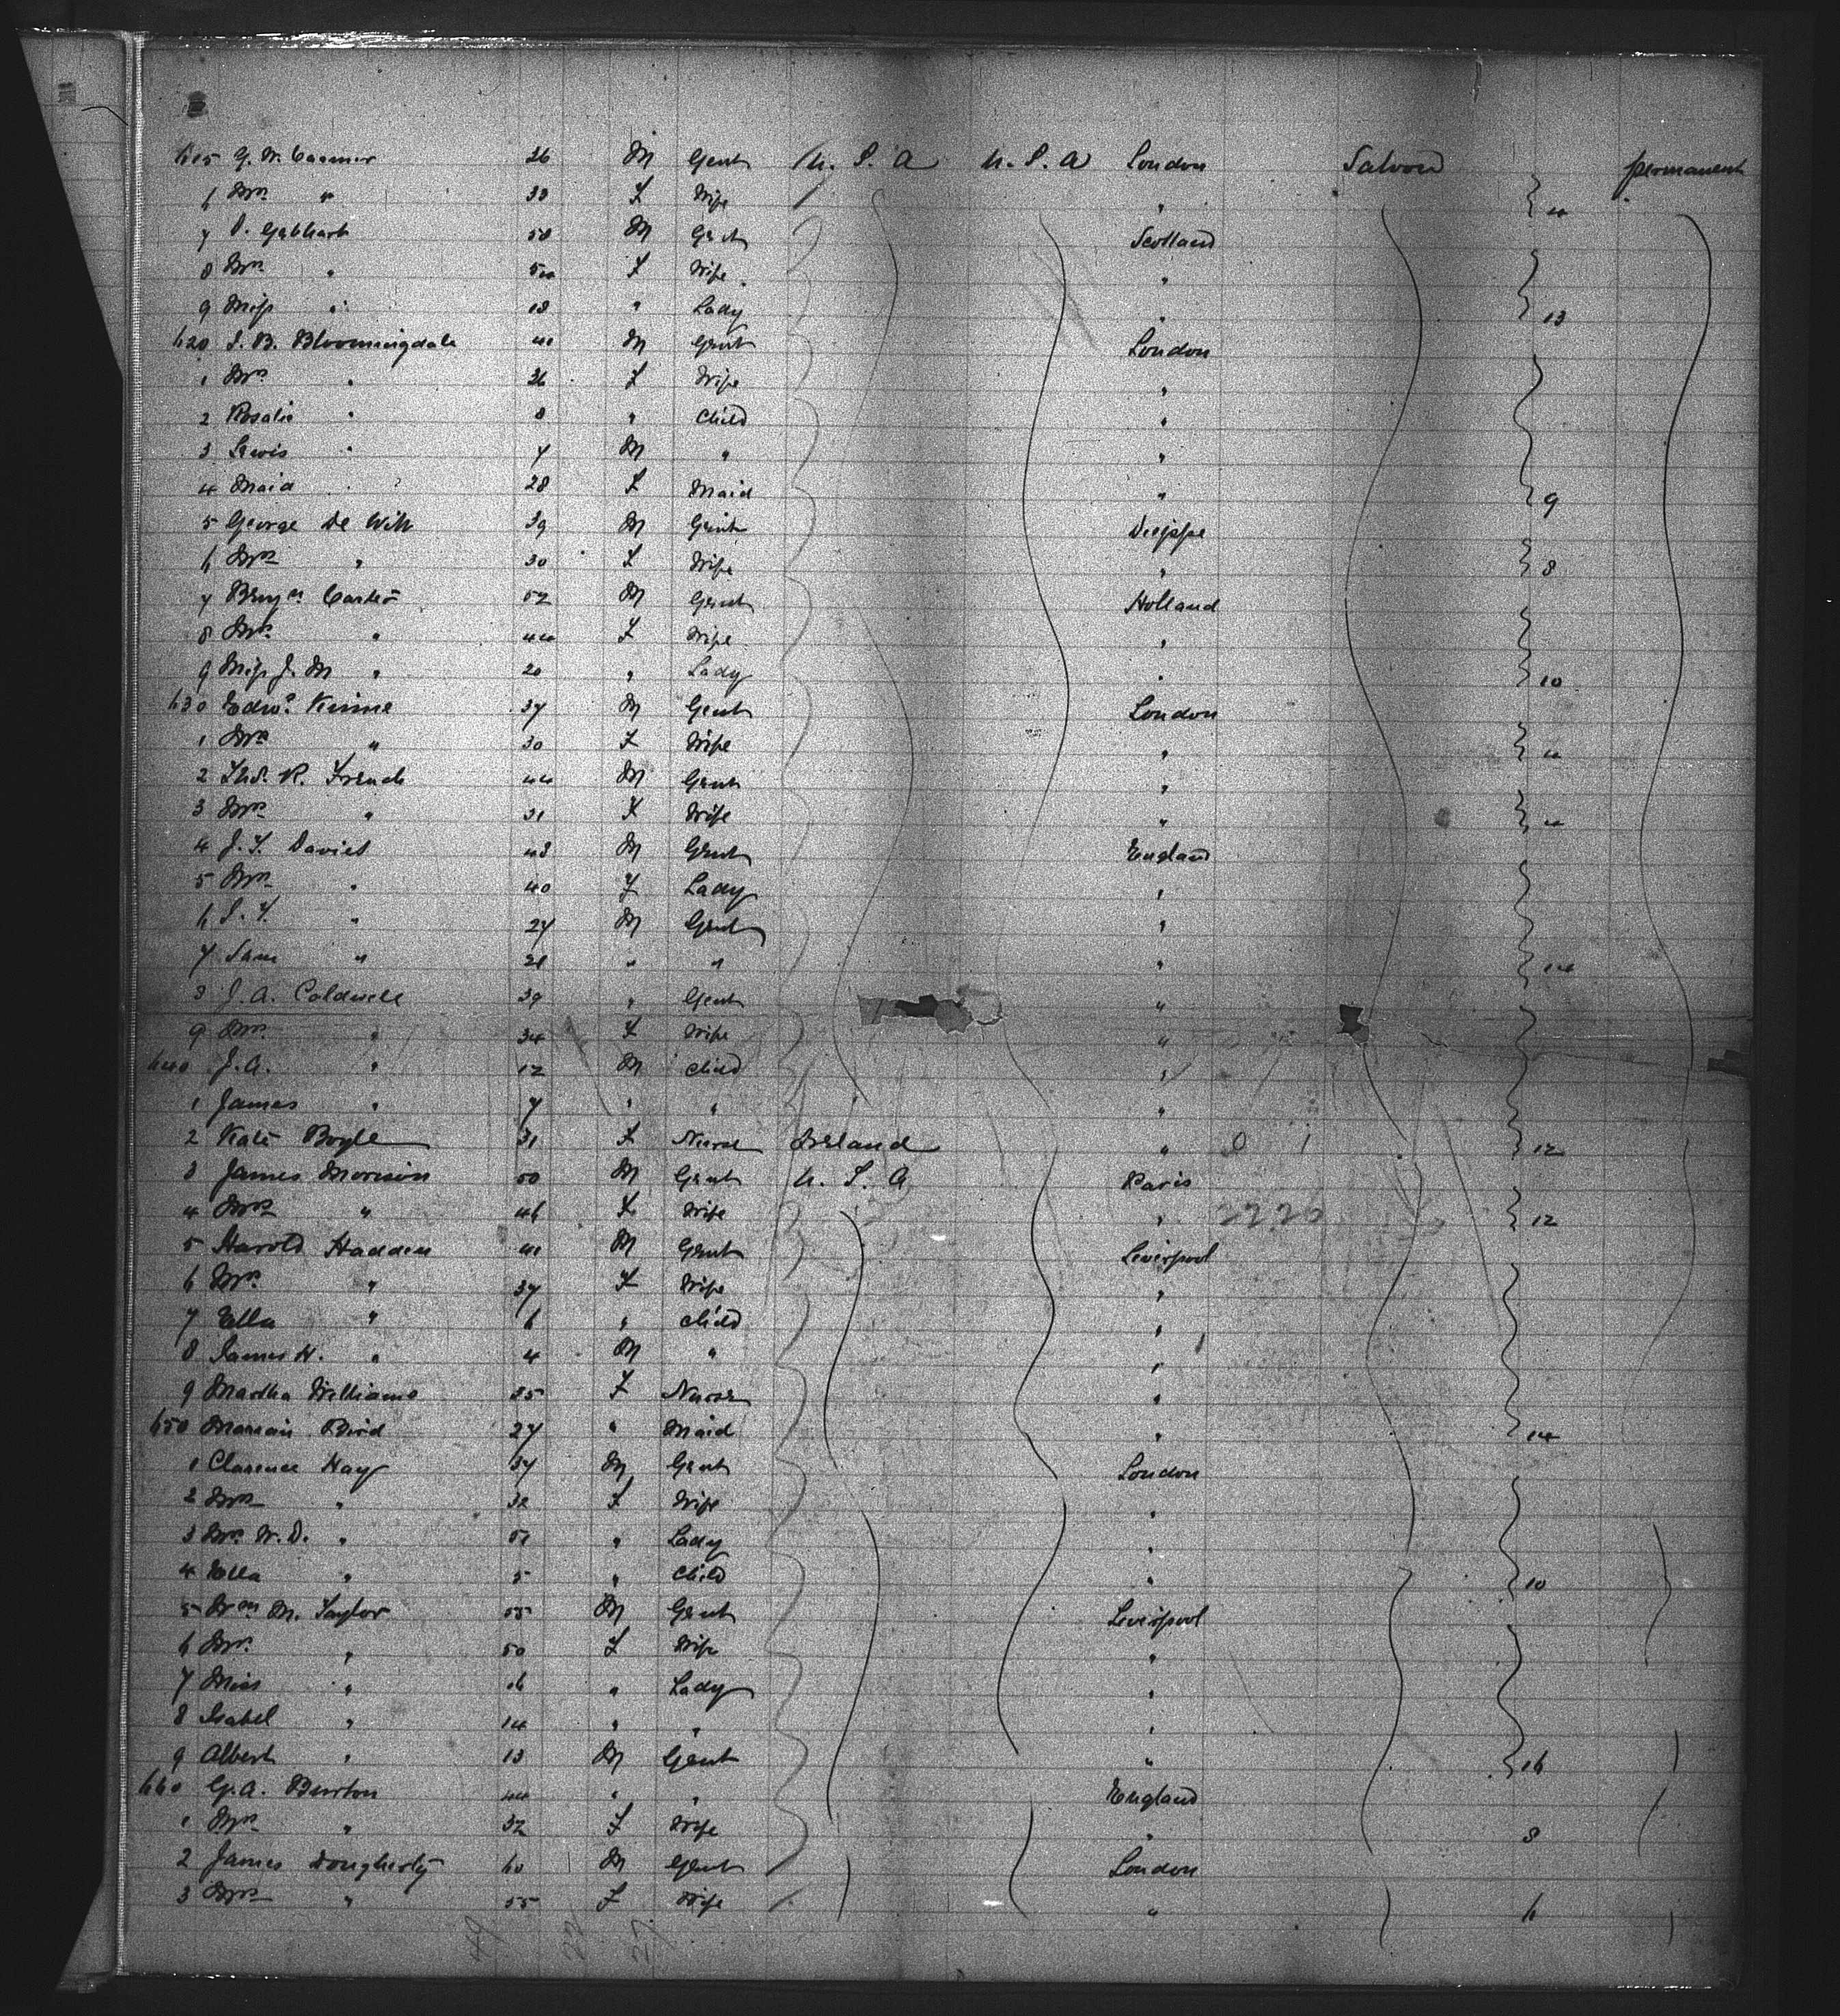 615 G. W. Carmer 36 M Gent U. S. A U. S. A London Saloon permanent
6 Mrs " 33 F Wife " 4
7 D. Gebhart 58 M Gent Scotland
8 Mrs " 54 F Wife "
9 Miss " 18 " Lady " 13
620 S. B. Bloomingdale 41 M Gent London
1 Mrs " 36 F Wife "
2 Rosalie " 8 " Child "
3 Lewis " 7 M " "
4 Maid " 28 F Maid " 9
5 George De Witt 39 M Gent Dieppe
6 Mrs " 30 F Wife " 8
7 Benjn Carter 52 M Gent Holland
8 Mrs " 44 F Wife "
9 Miss J. M " 20 " Lady " 10
630 Edwd Kinne 37 M Gent London
1 Mrs " 30 F Wife " 4
2 Thos. R. French 44 M Gent "
3 Mrs " 31 F Wife " 4
4 J. T. Davies 43 M Gent England
5 Mrs " 40 F Lady "
6 S. T. " 27 M Gent "
7 Sam " 21 " " " 14
8 J. A. Coldwell 39 " Gent "
9 Mrs " 34 F Wife "
640 J. A. " 12 M Child "
1 James " 7 " " "
2 Kate Boyle 31 F Nurse Ireland " 12
3 James Morrison 50 M Gent U. S. A Paris
4 Mrs " 46 F Wife " 12
5 Harold Hadden 41 M Gent Liverpool
6 Mrs " 37 F Wife "
7 Ella " 6 " Child "
8 James H. " 4 M " "
9 Martha Williams 35 F Nurse "
650 Marian Bird 27 " Maid " 14
1 Clarence Hay 37 M Gent London
2 Mrs " 32 F Wife "
3 Mrs W. D. " 51 " Lady "
4 Ella " 5 " Child " 10
5 Wm M. Taylor 55 M Gent Liverpool
6 Mrs " 50 F Wife "
7 Miss " 16 " Lady "
8 Isabel " 14 " " "
9 Albert " 13 M Gent " 16
660 G. A. Burton 44 " " England
1 Mrs " 32 F Wife " 8
2 James Dougherty 60 M Gent London
3 Mrs " 55 F Wife " 6
49 22 27